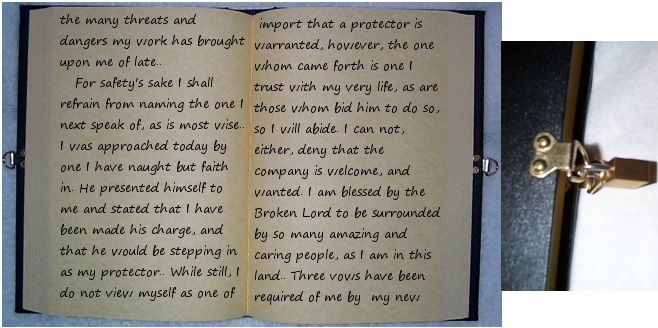 the many threats and
dangers my work has brought
upon me of late..
For safety's sake I shall
refrain from naming the one I
next speak of, as is most wise..
I was approached today by
one I have naught but faith
in. He presented himself to
me and stated that I have
been made his charge, and
that he would be stepping in
as my protector.. While still, I
do not view myself as one of
import that a protector is
warranted, however, the one
whom came forth is one I
trust with my very life, as are
those whom bid him to do so,
so I will abide. I can not,
either, deny that the
company is welcome, and
wanted. I am blessed by the
Broken Lord to be surrounded
by so many amazing and
caring people, as I am in this
land.. Three vows have been
required of me by my new